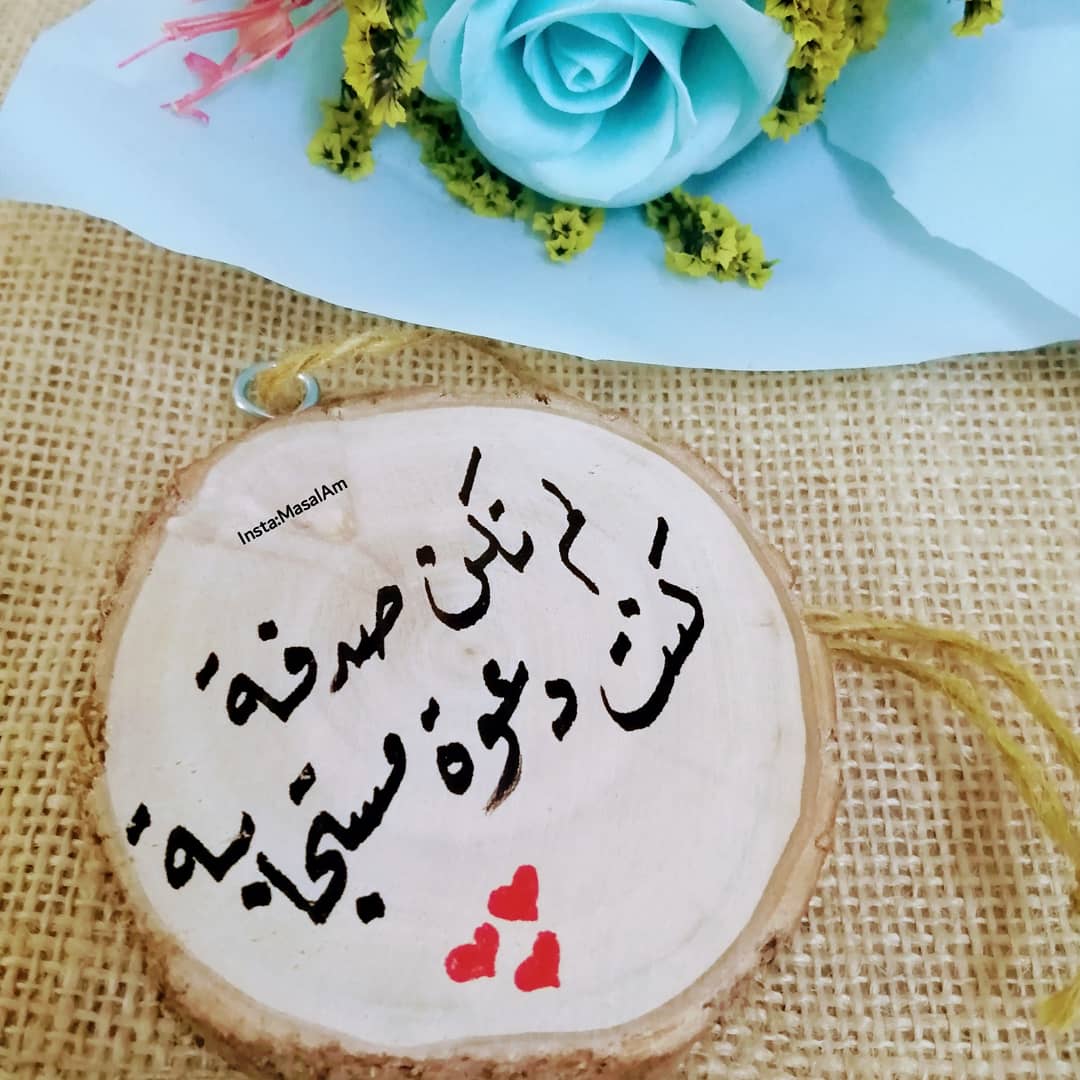 Insta:MasalAm
لم تكن صدفة
كنت دعوة مستجابة